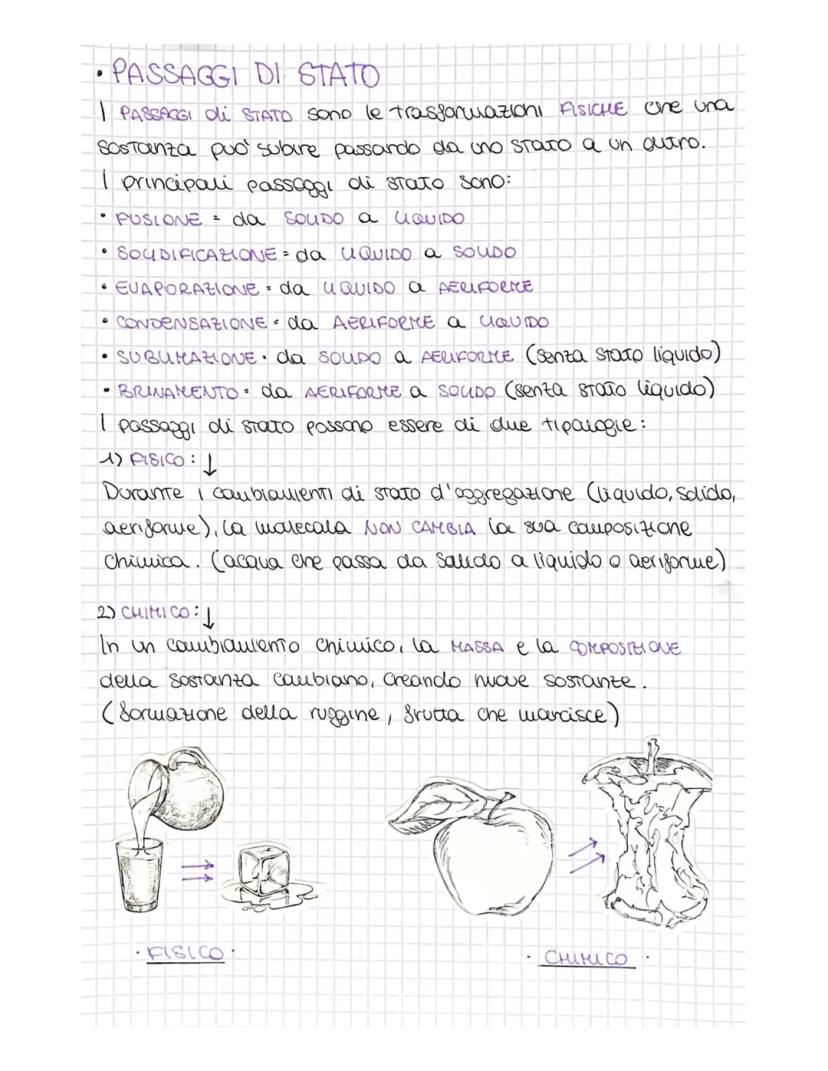 • PASSAGGI DI STATO
I PASSAGGI di STATO sono le trasformazioni FISICHE che una
sostanza può subire passando da uno stato a un altro.
I principali passaggi di stato sono:
• FUSIONE = da SOLIDO a LIQUIDO
• SOLIDIFICAZIONE = da LIQUIDO a SOLIDO
• EVAPORAZIONE = da LIQUIDO a AERIFORME
• CONDENSAZIONE = da AERIFORME a LIQUIDO
• SUBLIMAZIONE = da SOLIDO a AERIFORME (senza stato liquido)
• BRINAMENTO = da AERIFORME a SOLIDO (senza stato liquido)
I passaggi di stato possono essere di due tipologie:
1) FISICO: ↓
Durante i cambiamenti di stato d'aggregazione (liquido, solido,
aeriforme), la molecola NON CAMBIA la sua composizione
chimica. (acqua che passa da solido a liquido o aeriforme)
2) CHIMICO: ↓
In un cambiamento chimico, la MASSA e la COMPOSIZIONE
della sostanza cambiano, creando nuove sostanze.
(formazione della ruggine, frutta che marcisce)
• FISICO •
• CHIMICO •